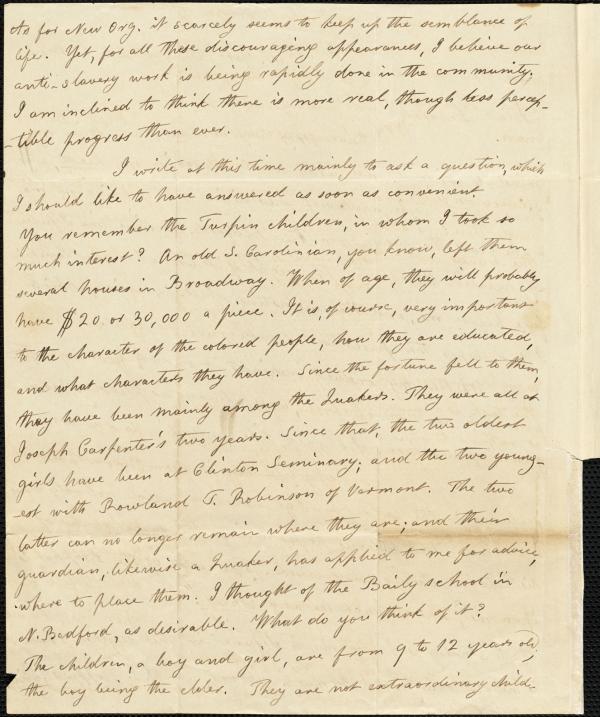 As for New Org. it scarcely seems to keep up the semblance of
life. Yet, for all these discouraging appearances, I believe our
anti-slavery work is being rapidly done in the community;
I am inclined to think there is more real, though less percep-
-tible progress than ever.
I write at this time mainly to ask a question, which
I should like to have answered as soon as convenient.
You remember the Turpin children, in whom I took so
much interest? An old S. Carolinian, you know, left them
several houses in Broadway. When of age, they will probably
have $20 or 30,000 a piece. It is, of course, very important
to the character of the colored people, how they are educated,
and what characters they have. Since the fortune fell to them,
they have been mainly among the Quakers. They were all at
Joseph Carpenter's two years. Since that, the two oldest
girls have been at Clinton Seminary; and the two young-
-est with Rowland T. Robinson of Vermont. The two
latter can no longer remain where they are; and their
guardian, likewise a Quaker, has applied to me for advice,
where to place them. I thought of the Baily school in
N. Bedford, as desirable. What do you think of it?
The children, a boy and girl, are from 9 to 12 years old,
the boy being the elder. They are not extraordinary child-